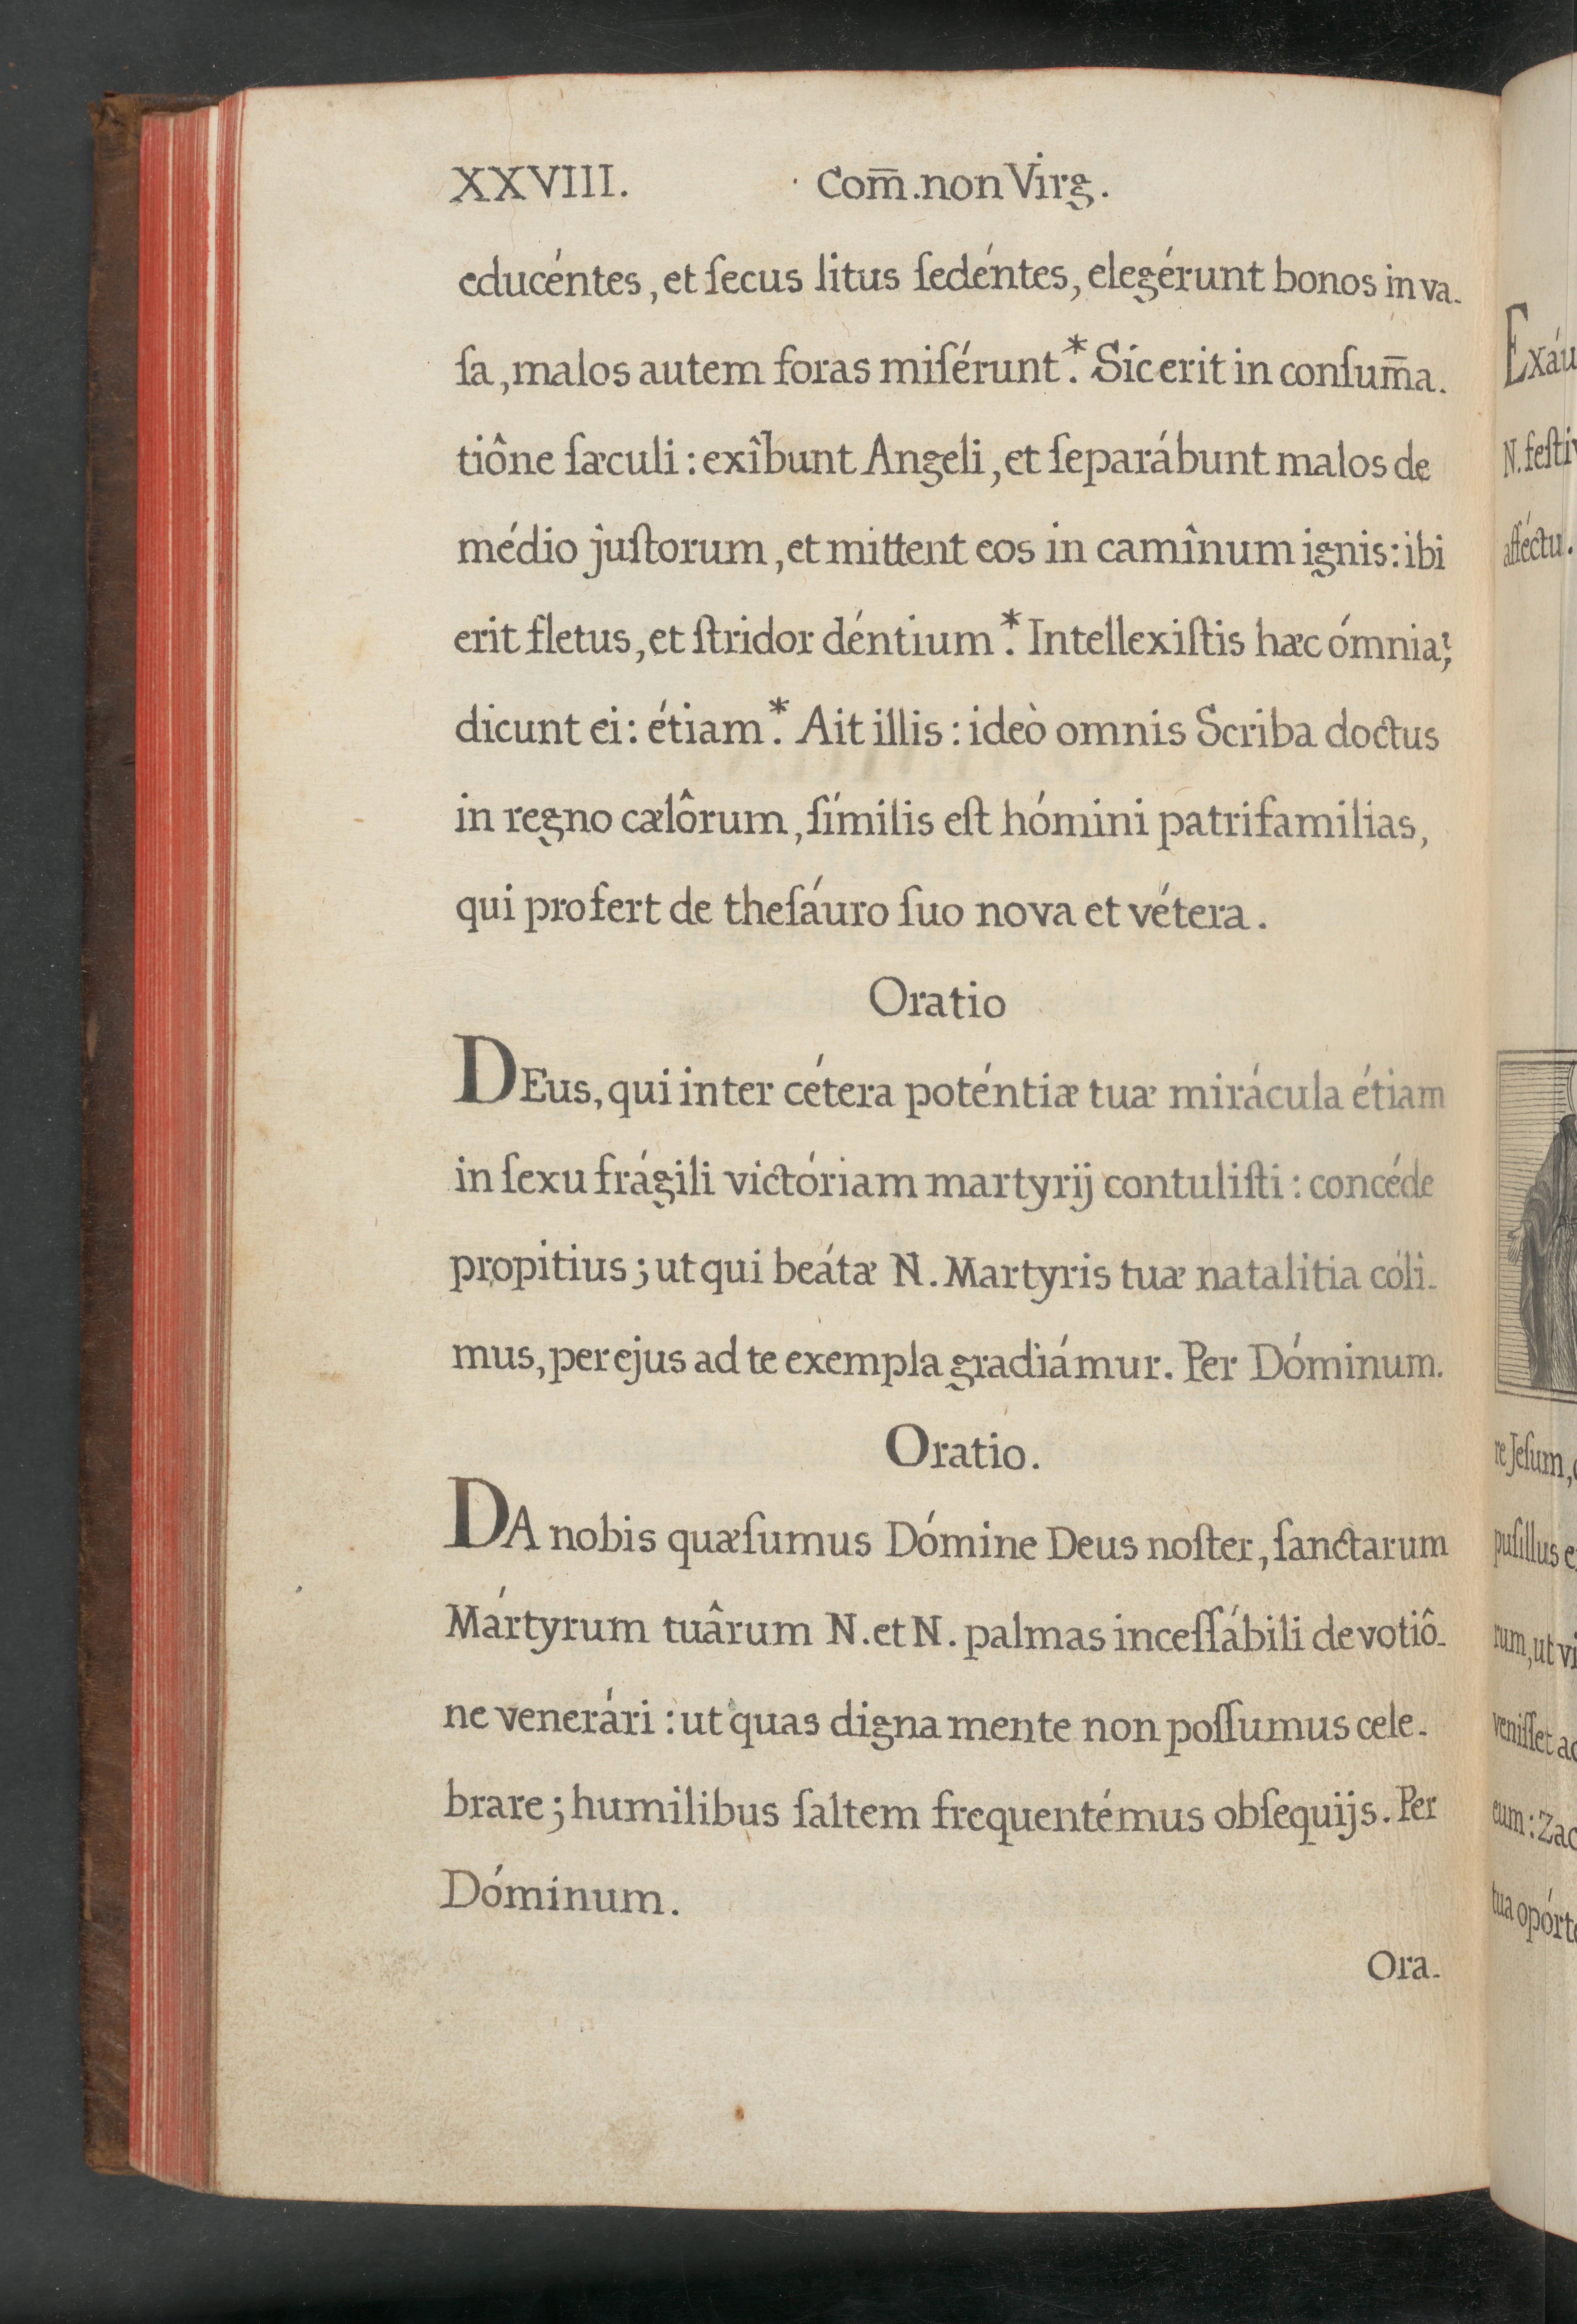 XXVIII. Com̅.non Virg.
educéntes, et ſecus litus ſedéntes, elegérunt bonos in va-
ſa, malos autem foras miſérunt.* Sic erit in conſum̅a-
tiône ſæculi: exîbunt Angeli, et ſeparábunt malos de
médio juſtorum, et mittent eos in camînum ignis: ibi
erit fletus, et ſtridor déntium.* Intellexiſtis hæc ómnia?
dicunt ei: étiam.* Ait illis: ideò omnis Scriba doctus
in regno cælôrum, ſímilis eſt hómini patrifamilias,
qui profert de theſáuro ſuo nova et vétera.
Oratio
DEus, qui inter cétera poténtiæ tuæ mirácula étiam
in ſexu frágili victóriam martyrij contuliſti: concéde
propitius; ut qui beátæ N. Martyris tuæ natalitia cóli-
mus, per ejus ad te exempla gradiámur. Per Dóminum.
Oratio.
DA nobis quæſumus Dómine Deus noſter, ſanctarum
Mártyrum tuârum N. et N. palmas inceſſábili devotiô-
ne venerári: ut quas digna mente non poſſumus cele-
brare; humilibus ſaltem frequentémus obſequijs. Per
Dóminum.
Ora-
Exáu
N. feſti
afféctu.
re Jeſum,
puſillus e
rum, ut vi
veniſſet ad
eum: Zac
tua opórte